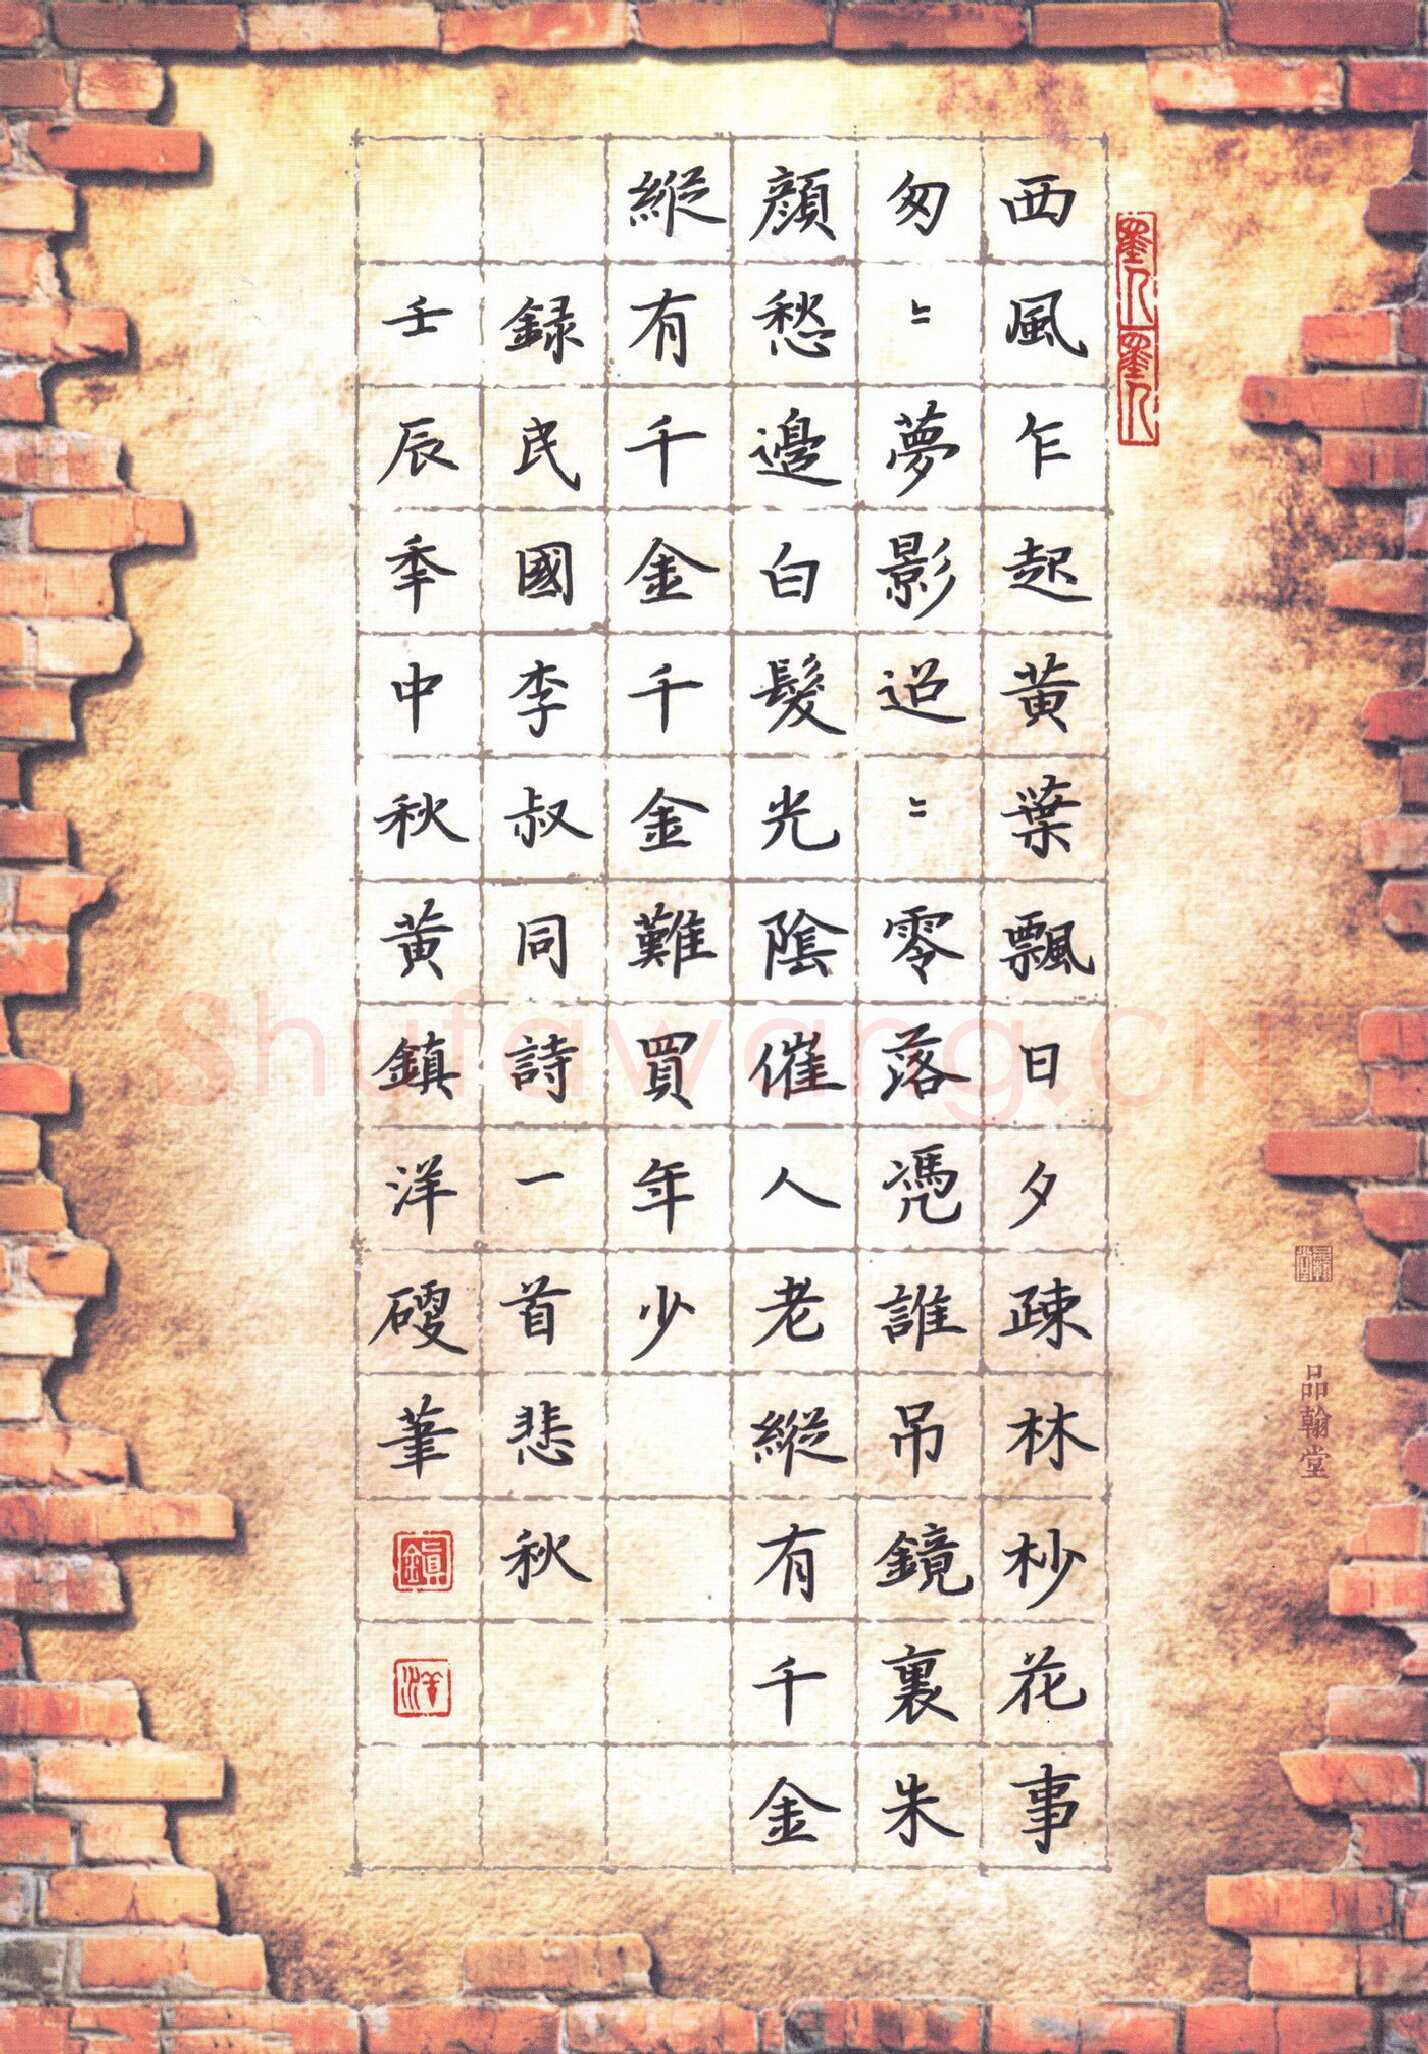 西風乍起黃葉飄日夕疎林杪花事
匆〻夢影迢〻零落凴誰吊鏡裏朱
顏愁邊白髮光陰催人老縱有千金
縱有千金千金難買年少
録民國李叔同詩一首悲秋
壬辰秊中秋黃鎮洋硬筆
鎮
洋
品翰堂
Shufawang.CN